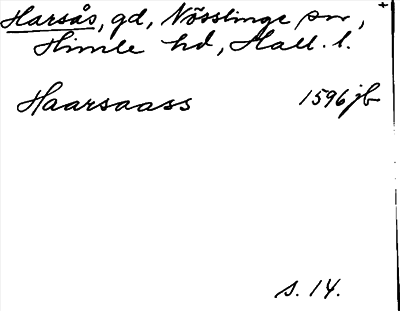 Harsås, gd, Nösslinge sn,
Himle hd, Hall. l.
Haarsaass 1596 jb
s. 14.